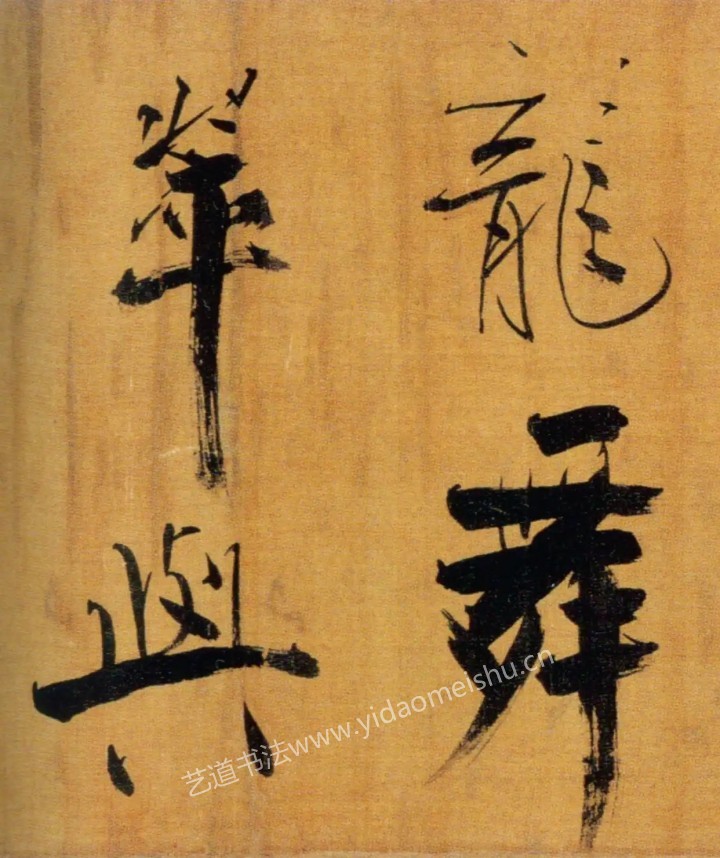 龍舞
與
艺道书法www.yidaomeishu.cn